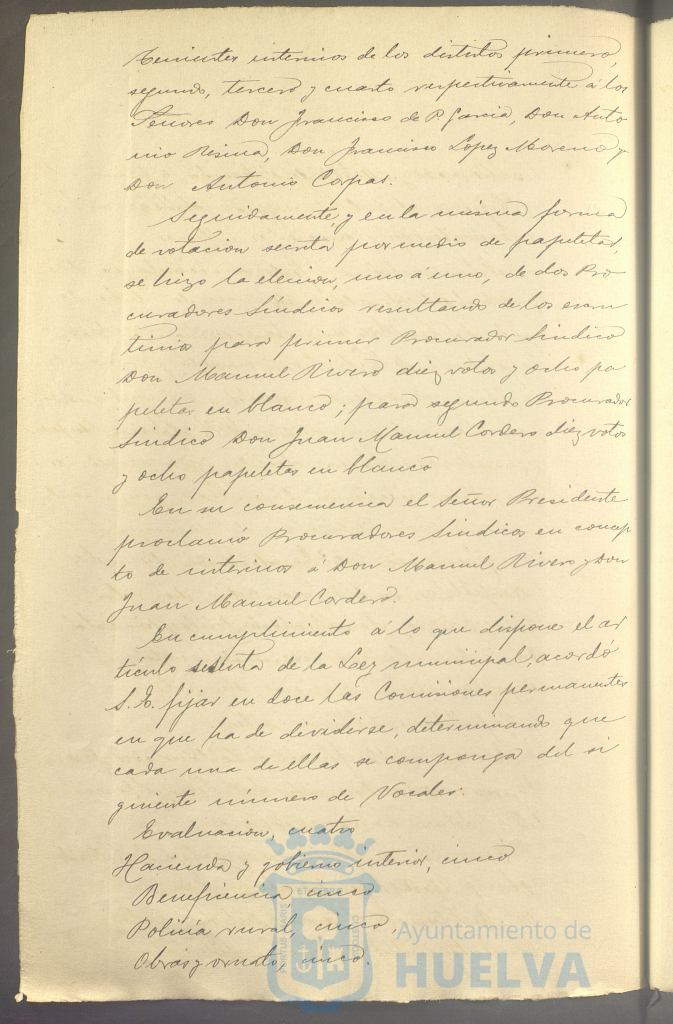 tenientes interinos de los distritos primero,
segundo, tercero y cuarto respectivamente á los
Señores Don Francisco de P Garcia, Don Anto
nio Resina, Don Francisco Lopez Moreno y
Don Antonio Corpas.
Seguidamente, y en la misma forma
de votacion secreta por medio de papeletas,
se hizo la eleccion, uno á uno, de dos Pro
curadores Síndicos resultando de los escru
tinios para primer Procurador Sindico
Don Manuel Rivero diez votos y ocho pa
peletas en blanco; para segundo Procurador
Sindico Don Juan Manuel Cordero diez votos
y ocho papeletas en blanco
En su consecuencia el Señor Presidente
proclamó Procuradores Sindicos en concep
to de interinos á Don Manuel Rivero y Don
Juan Manuel Cordero.
En cumplimiento á lo que dispone el ar
tículo sesenta de la Ley municipal, acordó
S. E. fijar en doce las Comisiones permanentes
en que ha de dividirse, determinando que
cada una de ellas se componga del si
guiente número de Vocales:
Evaluacion, cuatro
Hacienda y gobierno interior, cinco
Beneficencia cinco
Policía rural, cinco,
Obras y ornato, cinco.
Ayuntamiento de
HUELVA